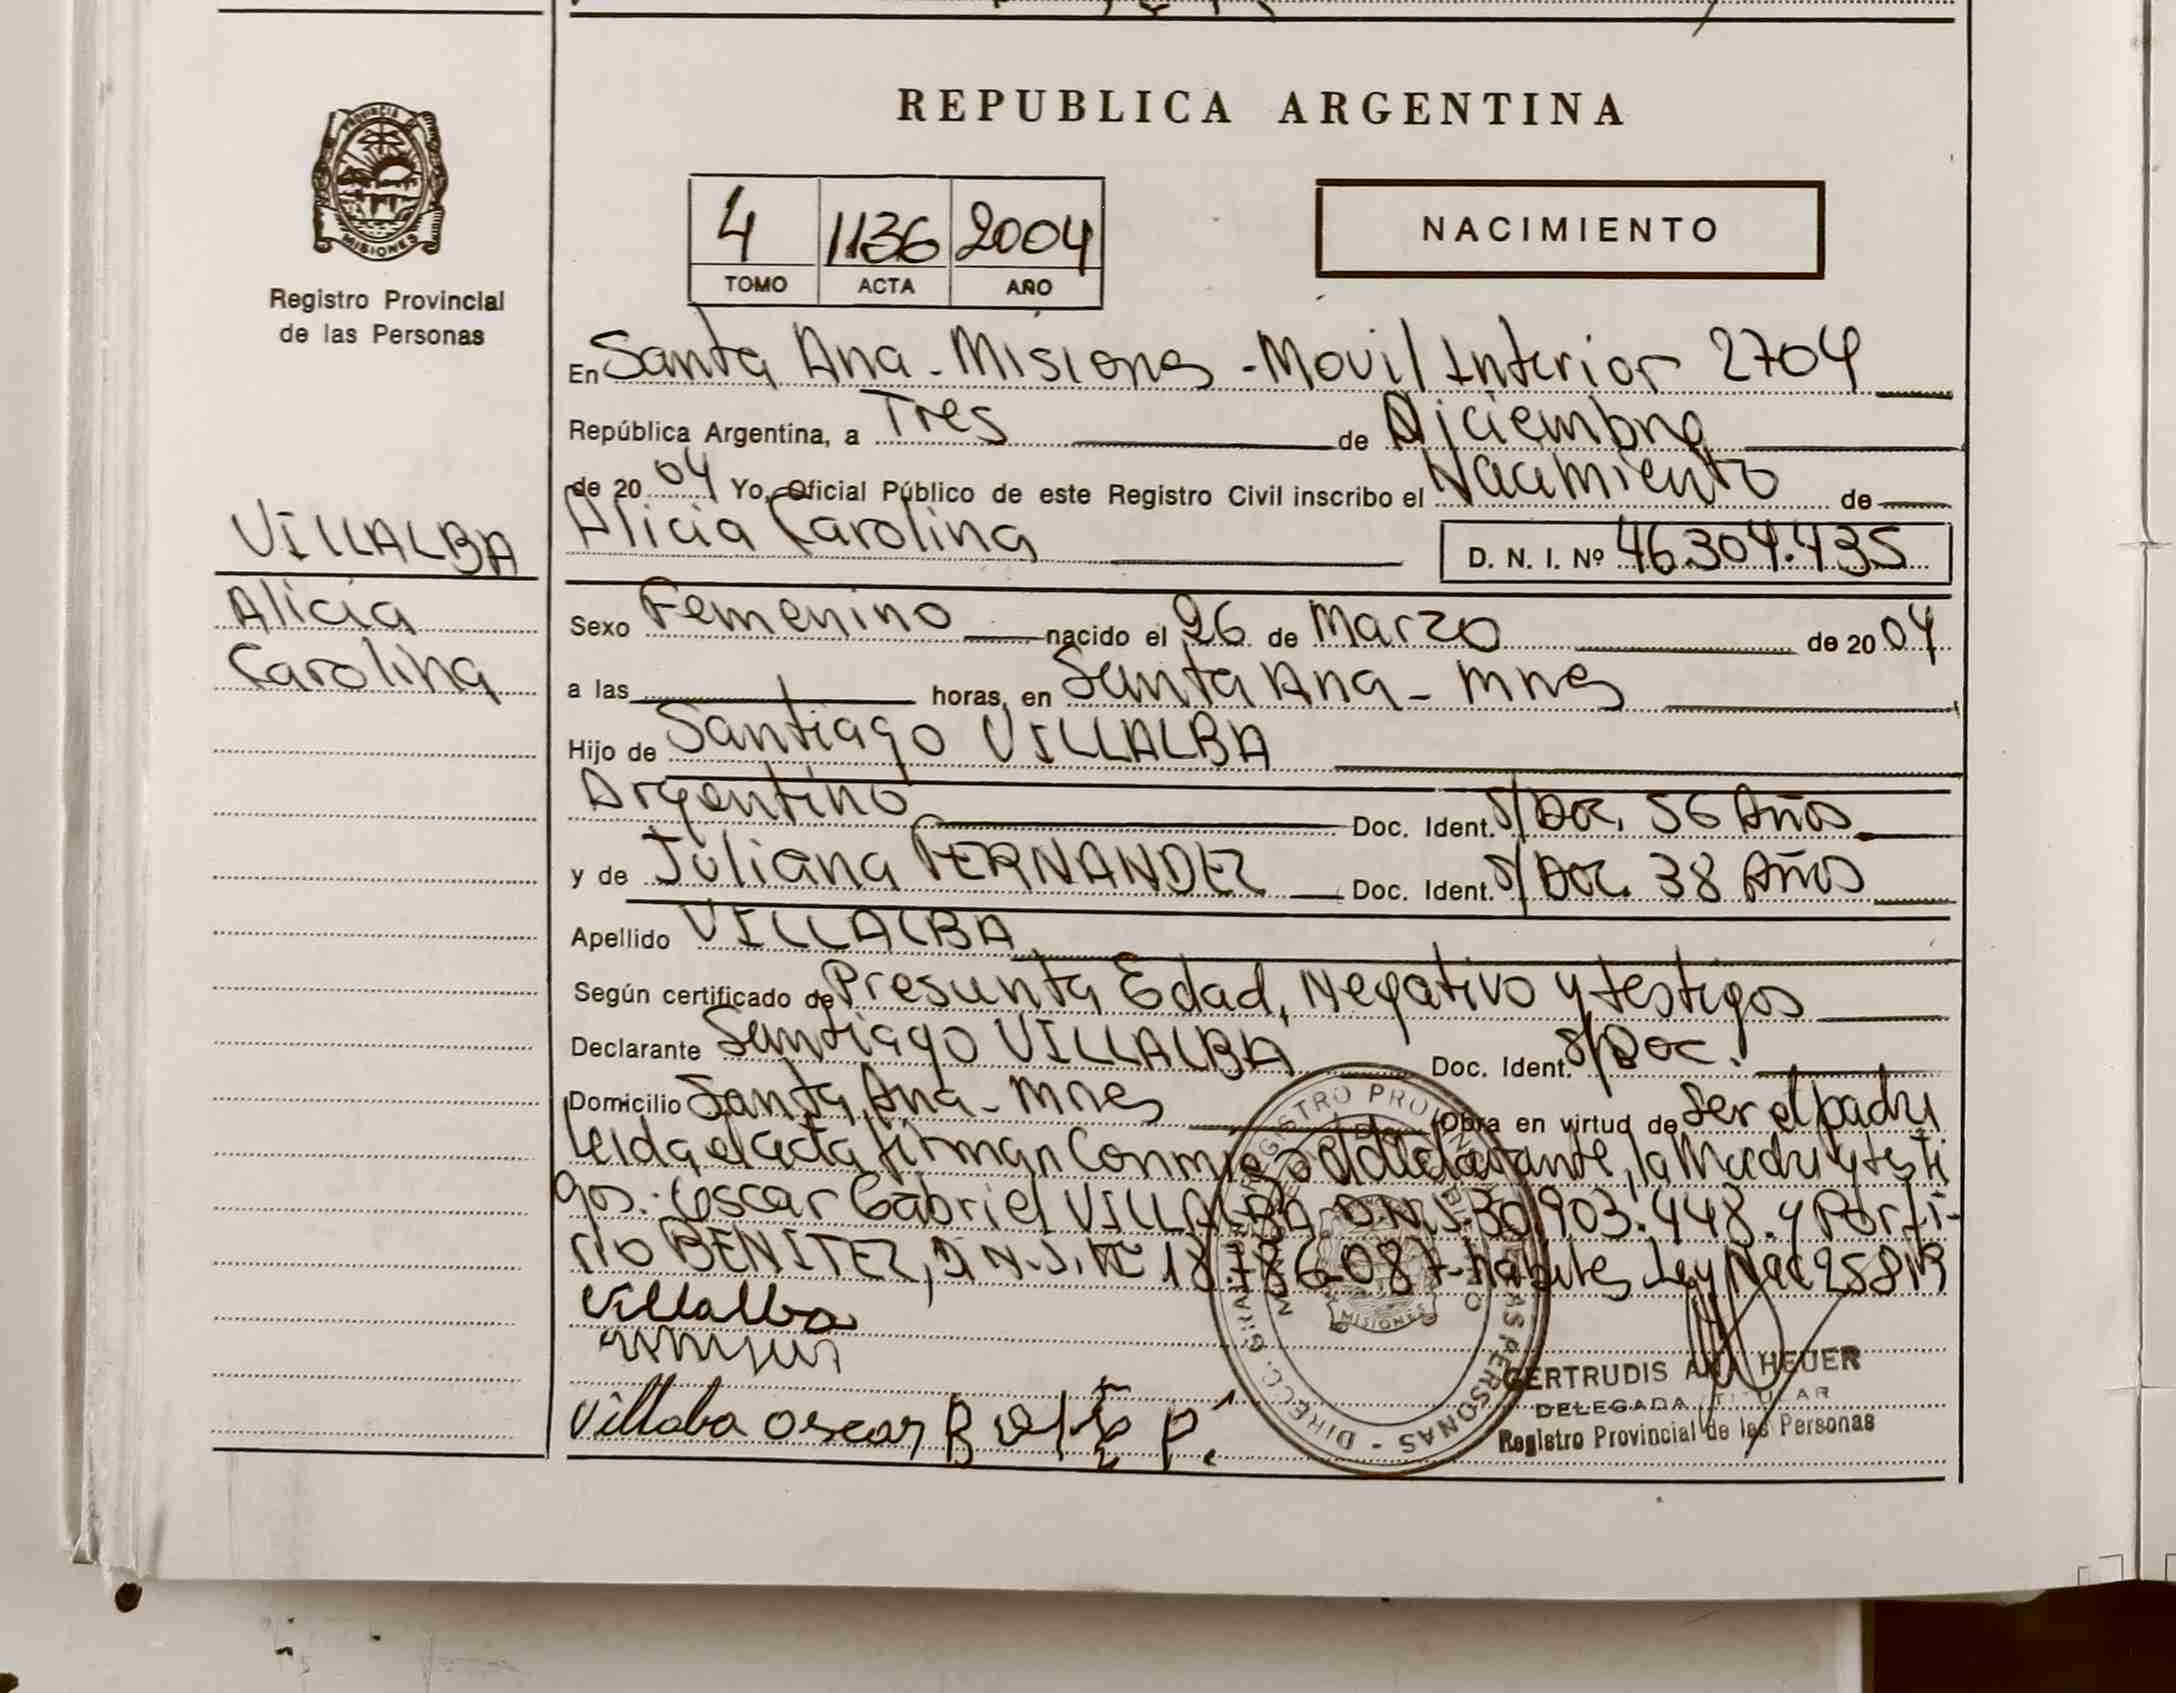 REPUBLICA ARGENTINA
PROVINCIA DE
MISIONES
Registro Provincial
de las Personas
4 1136 2004
TOMO ACTA AÑO
NACIMIENTO
En Santa Ana - Misiones - Movil Interior 2704
República Argentina, a Tres de Diciembre
de 2004 Yo, Oficial Público de este Registro Civil inscribo el Nacimiento de
VILLALBA
Alicia
Carolina
Alicia Carolina D. N. I. Nº 46.304.435
Sexo Femenino nacido el 26 de Marzo de 2004
a las horas, en Santa Ana - Mnes
Hijo de Santiago VILLALBA
Argentino Doc. Ident. S/Doc. 56 Años
y de Juliana FERNANDEZ Doc. Ident. S/Doc. 38 Años
Apellido VILLALBA
Según certificado de Presunta Edad, Negativo y testigos
Declarante Santiago VILLALBA Doc. Ident. S/Doc.
Domicilio Santa Ana - Mnes Obra en virtud de ser el padre
Leida el acta firman Conmigo el declarante, la Madre y testi
gos: Oscar Gabriel VILLALBA D.N.I. 30.903.448. y Porfi-
rio BENITEZ, D.N.I. Nº 18.786.087 - habiles Ley Nac 25819
Villalba
Villaba Oscar
GERTRUDIS HEUER
DELEGADA TITULAR
Registro Provincial de las Personas
REGISTRO PROVINCIAL DE LAS PERSONAS - DIRECC. GRAL.
MISIONES